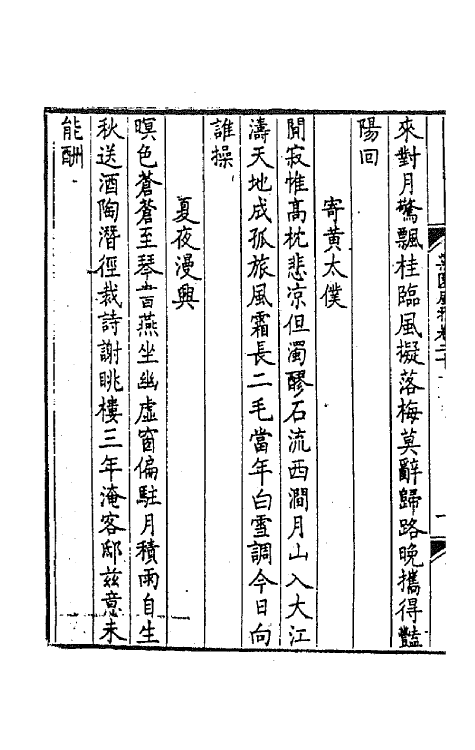 來對月驚飄桂臨風擬落梅莫辭歸路晚攜得豔
陽回
寄黃太僕
閒寂惟高枕悲凉但濁醪石流西澗月山入大江
濤天地成孤旅風霜長二毛當年白雪調今日向
誰操
夏夜漫興
暝色蒼蒼至琴書燕坐幽虛窗偏駐月積雨自生
秋送酒陶潛徑裁詩謝眺樓三年淹客邸兹意未
能酬